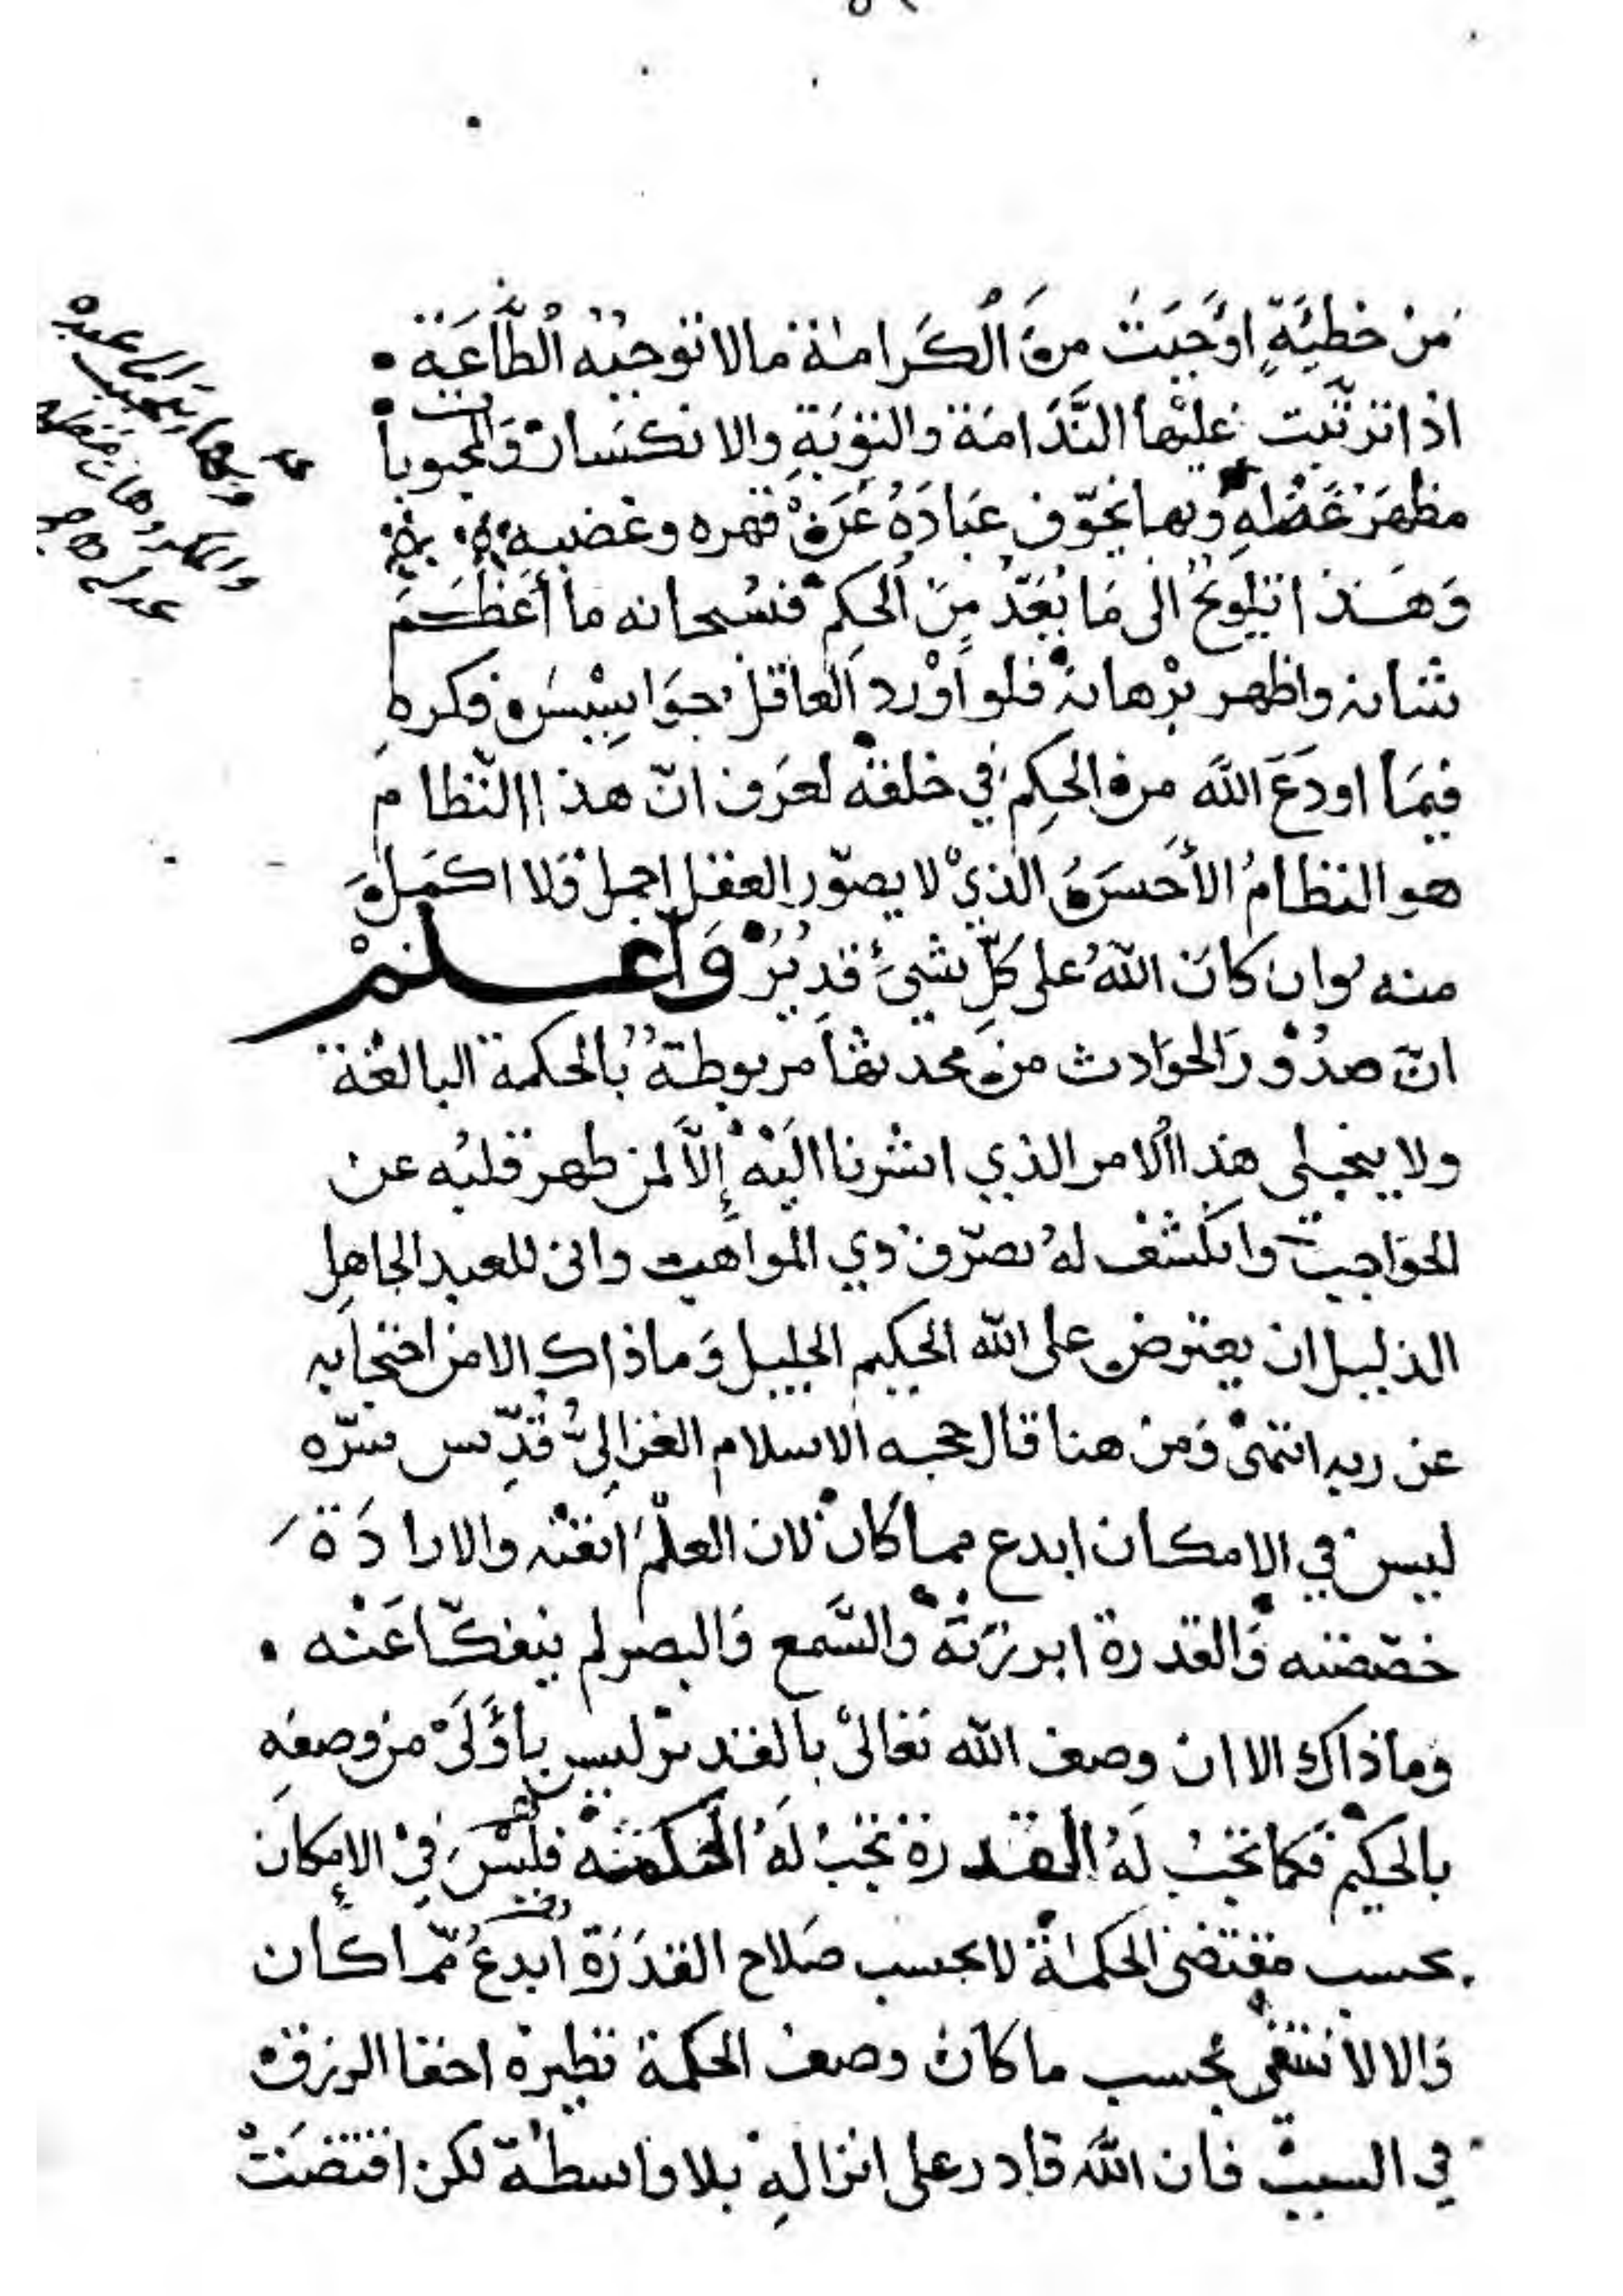 من خطيئةٍ اوجبت من الكرامة مالا توجبه الطاعة
اذا ترتبت عليها الندامة والتوبة والانكسار والمحبوبات
مظهر عَظمه وبها يخوّف عباده عن قهره وغضبه
وهذا تلويح الى ما بَعُد من الحكم فسبحانه ما أعظم
شانه واظهر برهانه فلو اورد العاقل جواسيس فكره
فيما اودع الله من الحكم في خلقه لعرف انّ هذا النظام
هو النظام الأحسن الذي لا يصوّر العقل اجمل ولا اكمل
منه وان كان الله على كلّ شئ قدير واعلم
انّ صدور الحوادث من محدثها مربوطة بالحكمة البالغة
ولا ينجلى هذا الامر الذي اشرنا اليه إلّا لمن طهر قلبه عن
الحواجب وانكشف له تصرّف ذي المواهب وانى للعبد الجاهل
الذليل ان يعترض على الله الحكيم الجليل وماذاك الامن احتجابه
عن ربه انتهى ومن هنا قال حجة الاسلام الغزالي قدّس سرّه
ليس في الامكان ابدع مما كان لان العلم اتقنه والارادة
خصّصته والقدرة ابرزته والسّمع والبصر لم ينفكّا عنه
وماذاك الا ان وصف الله تعالى بالقدير ليس بأولى من وصفه
بالحكيم فكما تجب له القدرة تجب له الحكمة فليس في الإمكان
بحسب مقتضى الحكمة لا بحسب صلاح القدرة ابدع ممّا كان
والا لانتفى بحسب ما كان وصف الحكمة نظيره اخفا الرزق
في السبب فان الله قادر على انزاله بلا واسطة لكن اقتضت